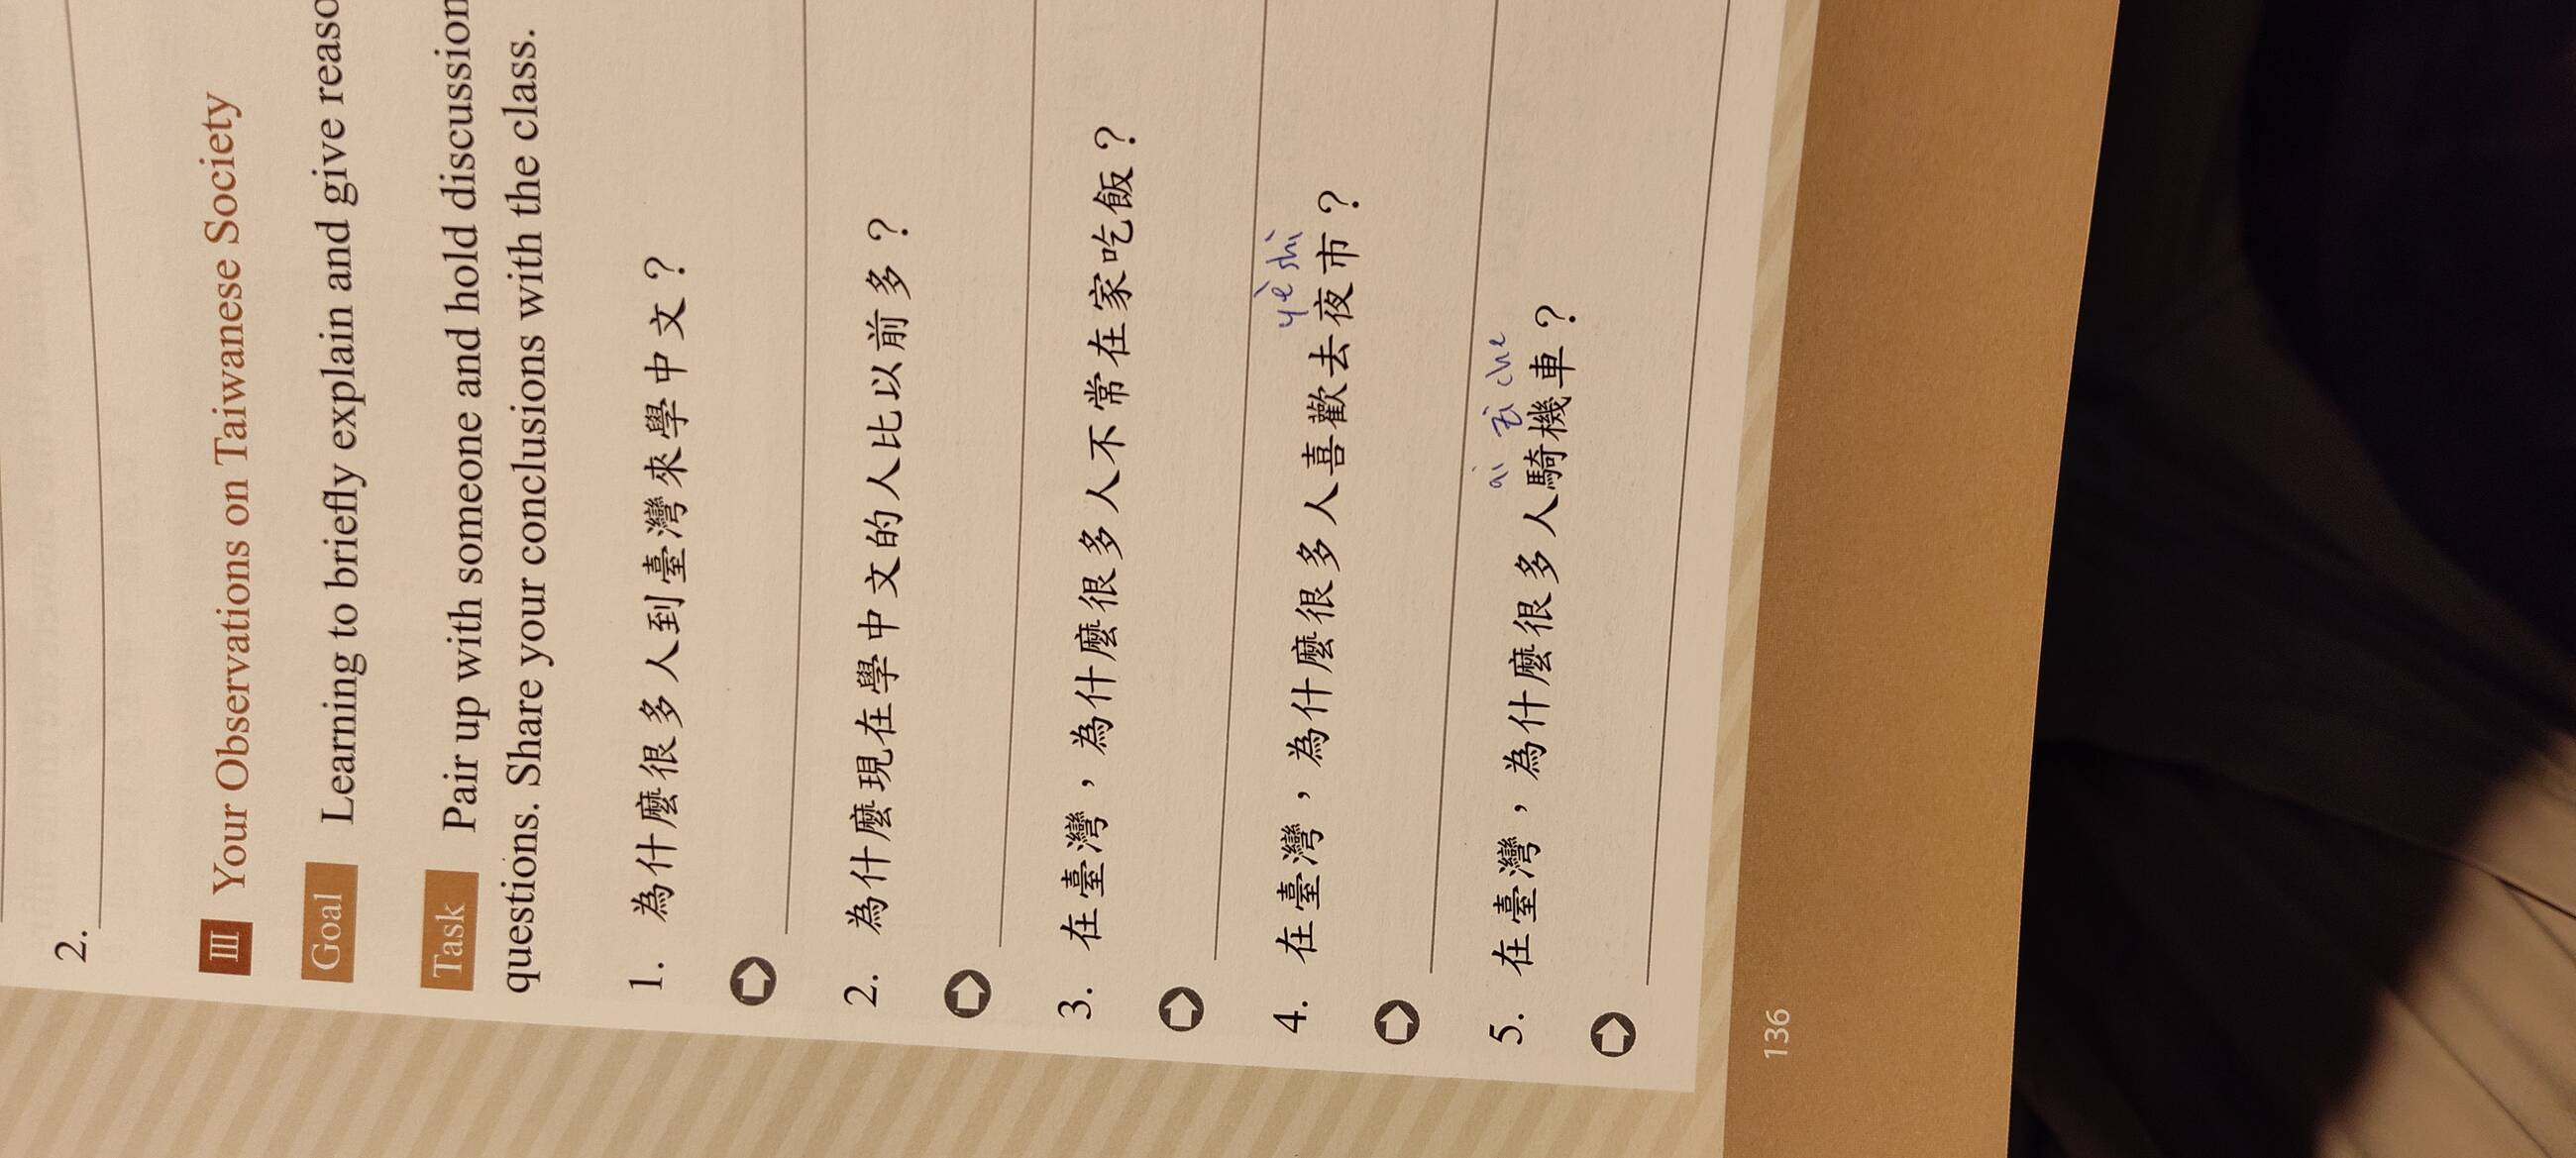 2.
III Your Observations on Taiwanese Society
Goal Learning to briefly explain and give reaso
Task Pair up with someone and hold discussion
questions. Share your conclusions with the class.
1. 為什麼很多人到臺灣來學中文？
2. 為什麼現在學中文的人比以前多？
3. 在臺灣，為什麼很多人不常在家吃飯？
yè shì
4. 在臺灣，為什麼很多人喜歡去夜市？
che
5. 在臺灣，為什麼很多人騎機車？
136